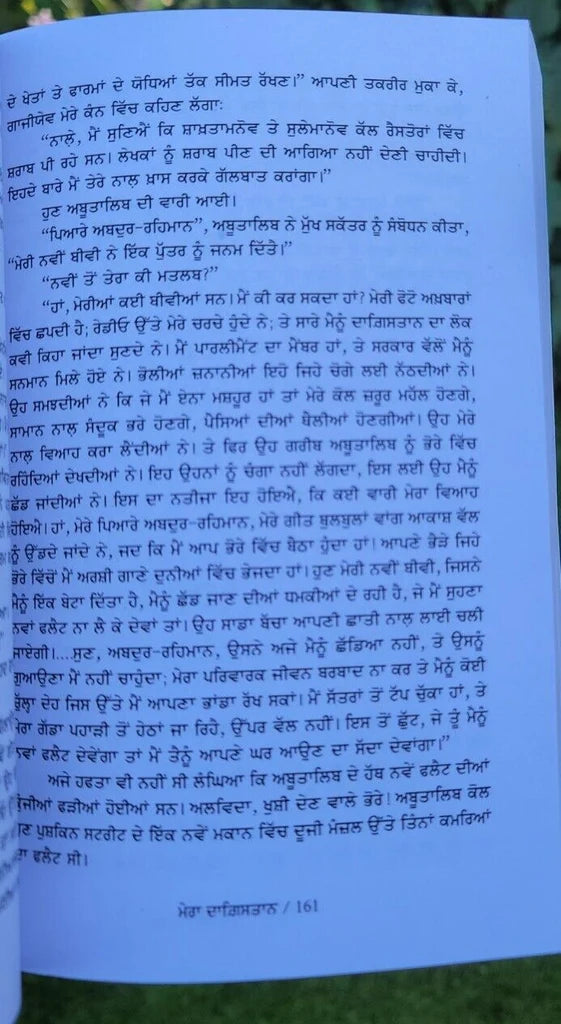 ਦੇ ਖੇਤਾਂ ਤੇ ਫਾਰਮਾਂ ਦੇ ਯੋਧਿਆਂ ਤੱਕ ਸੀਮਤ ਰੱਖਣ।” ਆਪਣੀ ਤਕਰੀਰ ਮੁਕਾ ਕੇ,
ਗਾਜੀਯੇਵ ਮੇਰੇ ਕੰਨ ਵਿੱਚ ਕਹਿਣ ਲੱਗਾ:
“ਨਾਲੇ, ਮੈਂ ਸੁਣਿਐਂ ਕਿ ਸ਼ਾਖ਼ਤਾਮਨੋਵ ਤੇ ਸੁਲੇਮਾਨੋਵ ਕੱਲ ਰੈਸਤੋਰਾਂ ਵਿੱਚ
ਸ਼ਰਾਬ ਪੀ ਰਹੇ ਸਨ। ਲੇਖਕਾਂ ਨੂੰ ਸ਼ਰਾਬ ਪੀਣ ਦੀ ਆਗਿਆ ਨਹੀਂ ਦੇਣੀ ਚਾਹੀਦੀ।
ਇਹਦੇ ਬਾਰੇ ਮੈਂ ਤੇਰੇ ਨਾਲ ਖ਼ਾਸ ਕਰਕੇ ਗੱਲਬਾਤ ਕਰਾਂਗਾ।”
ਹੁਣ ਅਬੂਤਾਲਿਬ ਦੀ ਵਾਰੀ ਆਈ।
“ਪਿਆਰੇ ਅਬਦੁਰ-ਰਹਿਮਾਨ”, ਅਬੂਤਾਲਿਬ ਨੇ ਮੁੱਖ ਸਕੱਤਰ ਨੂੰ ਸੰਬੋਧਨ ਕੀਤਾ,
“ਮੇਰੀ ਨਵੀਂ ਬੀਵੀ ਨੇ ਇੱਕ ਪੁੱਤਰ ਨੂੰ ਜਨਮ ਦਿੱਤੈ।”
“ਨਵੀਂ ਤੋਂ ਤੇਰਾ ਕੀ ਮਤਲਬ?”
“ਹਾਂ, ਮੇਰੀਆਂ ਕਈ ਬੀਵੀਆਂ ਸਨ। ਮੈਂ ਕੀ ਕਰ ਸਕਦਾ ਹਾਂ? ਮੇਰੀ ਫੋਟੋ ਅਖ਼ਬਾਰਾਂ
ਵਿੱਚ ਛਪਦੀ ਹੈ; ਰੇਡੀਓ ਉੱਤੇ ਮੇਰੇ ਚਰਚੇ ਹੁੰਦੇ ਨੇ; ਤੇ ਸਾਰੇ ਮੈਨੂੰ ਦਾਗ਼ਿਸਤਾਨ ਦਾ ਲੋਕ
ਕਵੀ ਕਿਹਾ ਜਾਂਦਾ ਸੁਣਦੇ ਨੇ। ਮੈਂ ਪਾਰਲੀਮੈਂਟ ਦਾ ਮੈਂਬਰ ਹਾਂ, ਤੇ ਸਰਕਾਰ ਵੱਲੋਂ ਮੈਨੂੰ
ਸਨਮਾਨ ਮਿਲੇ ਹੋਏ ਨੇ। ਭੋਲੀਆਂ ਜ਼ਨਾਨੀਆਂ ਇਹੋ ਜਿਹੇ ਚੋਗੇ ਲਈ ਨੱਠਦੀਆਂ ਨੇ।
ਉਹ ਸਮਝਦੀਆਂ ਨੇ ਕਿ ਜੇ ਮੈਂ ਏਨਾ ਮਸ਼ਹੂਰ ਹਾਂ ਤਾਂ ਮੇਰੇ ਕੋਲ ਜ਼ਰੂਰ ਮਹੱਲ ਹੋਣਗੇ,
ਸਾਮਾਨ ਨਾਲ ਸੰਦੂਕ ਭਰੇ ਹੋਣਗੇ, ਪੈਸਿਆਂ ਦੀਆਂ ਥੈਲੀਆਂ ਹੋਣਗੀਆਂ। ਉਹ ਮੇਰੇ
ਨਾਲ ਵਿਆਹ ਕਰਾ ਲੈਂਦੀਆਂ ਨੇ। ਤੇ ਫਿਰ ਉਹ ਗਰੀਬ ਅਬੂਤਾਲਿਬ ਨੂੰ ਭੋਰੇ ਵਿੱਚ
ਰਹਿੰਦਿਆਂ ਦੇਖਦੀਆਂ ਨੇ। ਇਹ ਉਹਨਾਂ ਨੂੰ ਚੰਗਾ ਨਹੀਂ ਲੱਗਦਾ, ਇਸ ਲਈ ਉਹ ਮੈਨੂੰ
ਛੱਡ ਜਾਂਦੀਆਂ ਨੇ। ਇਸ ਦਾ ਨਤੀਜਾ ਇਹ ਹੋਇਐ, ਕਿ ਕਈ ਵਾਰੀ ਮੇਰਾ ਵਿਆਹ
ਹੋਇਐ। ਹਾਂ, ਮੇਰੇ ਪਿਆਰੇ ਅਬਦੁਰ-ਰਹਿਮਾਨ, ਮੇਰੇ ਗੀਤ ਬੁਲਬੁਲਾਂ ਵਾਂਗ ਆਕਾਸ਼ ਵੱਲ
ਨੂੰ ਉੱਡਦੇ ਜਾਂਦੇ ਨੇ, ਜਦ ਕਿ ਮੈਂ ਆਪ ਭੋਰੇ ਵਿੱਚ ਬੈਠਾ ਹੁੰਦਾ ਹਾਂ। ਆਪਣੇ ਭੈੜੇ ਜਿਹੇ
ਭੋਰੇ ਵਿੱਚੋਂ ਮੈਂ ਅਰਸ਼ੀ ਗਾਣੇ ਦੁਨੀਆਂ ਵਿੱਚ ਭੇਜਦਾ ਹਾਂ। ਹੁਣ ਮੇਰੀ ਨਵੀਂ ਬੀਵੀ, ਜਿਸਨੇ
ਮੈਨੂੰ ਇੱਕ ਬੇਟਾ ਦਿੱਤਾ ਹੈ, ਮੈਨੂੰ ਛੱਡ ਜਾਣ ਦੀਆਂ ਧਮਕੀਆਂ ਦੇ ਰਹੀ ਹੈ, ਜੇ ਮੈਂ ਸੁਹਣਾ
ਨਵਾਂ ਫਲੈਟ ਨਾ ਲੈ ਕੇ ਦੇਵਾਂ ਤਾਂ। ਉਹ ਸਾਡਾ ਬੱਚਾ ਆਪਣੀ ਛਾਤੀ ਨਾਲ ਲਾਈ ਚਲੀ
ਜਾਏਗੀ।...ਸੁਣ, ਅਬਦੁਰ-ਰਹਿਮਾਨ, ਉਸਨੇ ਅਜੇ ਮੈਨੂੰ ਛੱਡਿਆ ਨਹੀਂ, ਤੇ ਉਸਨੂੰ
ਗੁਆਉਣਾ ਮੈਂ ਨਹੀਂ ਚਾਹੁੰਦਾ; ਮੇਰਾ ਪਰਿਵਾਰਕ ਜੀਵਨ ਬਰਬਾਦ ਨਾ ਕਰ ਤੇ ਮੈਨੂੰ ਕੋਈ
ਚੁੱਲ੍ਹਾ ਦੇਹ ਜਿਸ ਉੱਤੇ ਮੈਂ ਆਪਣਾ ਭਾਂਡਾ ਰੱਖ ਸਕਾਂ। ਮੈਂ ਸੱਤਰਾਂ ਤੋਂ ਟੱਪ ਚੁੱਕਾ ਹਾਂ, ਤੇ
ਮੇਰਾ ਗੱਡਾ ਪਹਾੜੀ ਤੋਂ ਹੇਠਾਂ ਜਾ ਰਿਹੈ, ਉੱਪਰ ਵੱਲ ਨਹੀਂ। ਇਸ ਤੋਂ ਛੁੱਟ, ਜੇ ਤੂੰ ਮੈਨੂੰ
ਨਵਾਂ ਫਲੈਟ ਦੇਵੇਂਗਾ ਤਾਂ ਮੈਂ ਤੈਨੂੰ ਆਪਣੇ ਘਰ ਆਉਣ ਦਾ ਸੱਦਾ ਦੇਵਾਂਗਾ।”
ਅਜੇ ਹਫਤਾ ਵੀ ਨਹੀਂ ਸੀ ਲੰਘਿਆ ਕਿ ਅਬੂਤਾਲਿਬ ਦੇ ਹੱਥ ਨਵੇਂ ਫਲੈਟ ਦੀਆਂ
ਕੁੰਜੀਆਂ ਫੜੀਆਂ ਹੋਈਆਂ ਸਨ। ਅਲਵਿਦਾ, ਖ਼ੁਸ਼ੀ ਦੇਣ ਵਾਲੇ ਭੋਰੇ! ਅਬੂਤਾਲਿਬ ਕੋਲ
ਪੁਸ਼ਕਿਨ ਸਟਰੀਟ ਦੇ ਇੱਕ ਨਵੇਂ ਮਕਾਨ ਵਿੱਚ ਦੂਜੀ ਮੰਜ਼ਲ ਉੱਤੇ ਤਿੰਨਾਂ ਕਮਰਿਆਂ
ਫਲੈਟ ਸੀ।
ਮੇਰਾ ਦਾਗ਼ਿਸਤਾਨ / 161